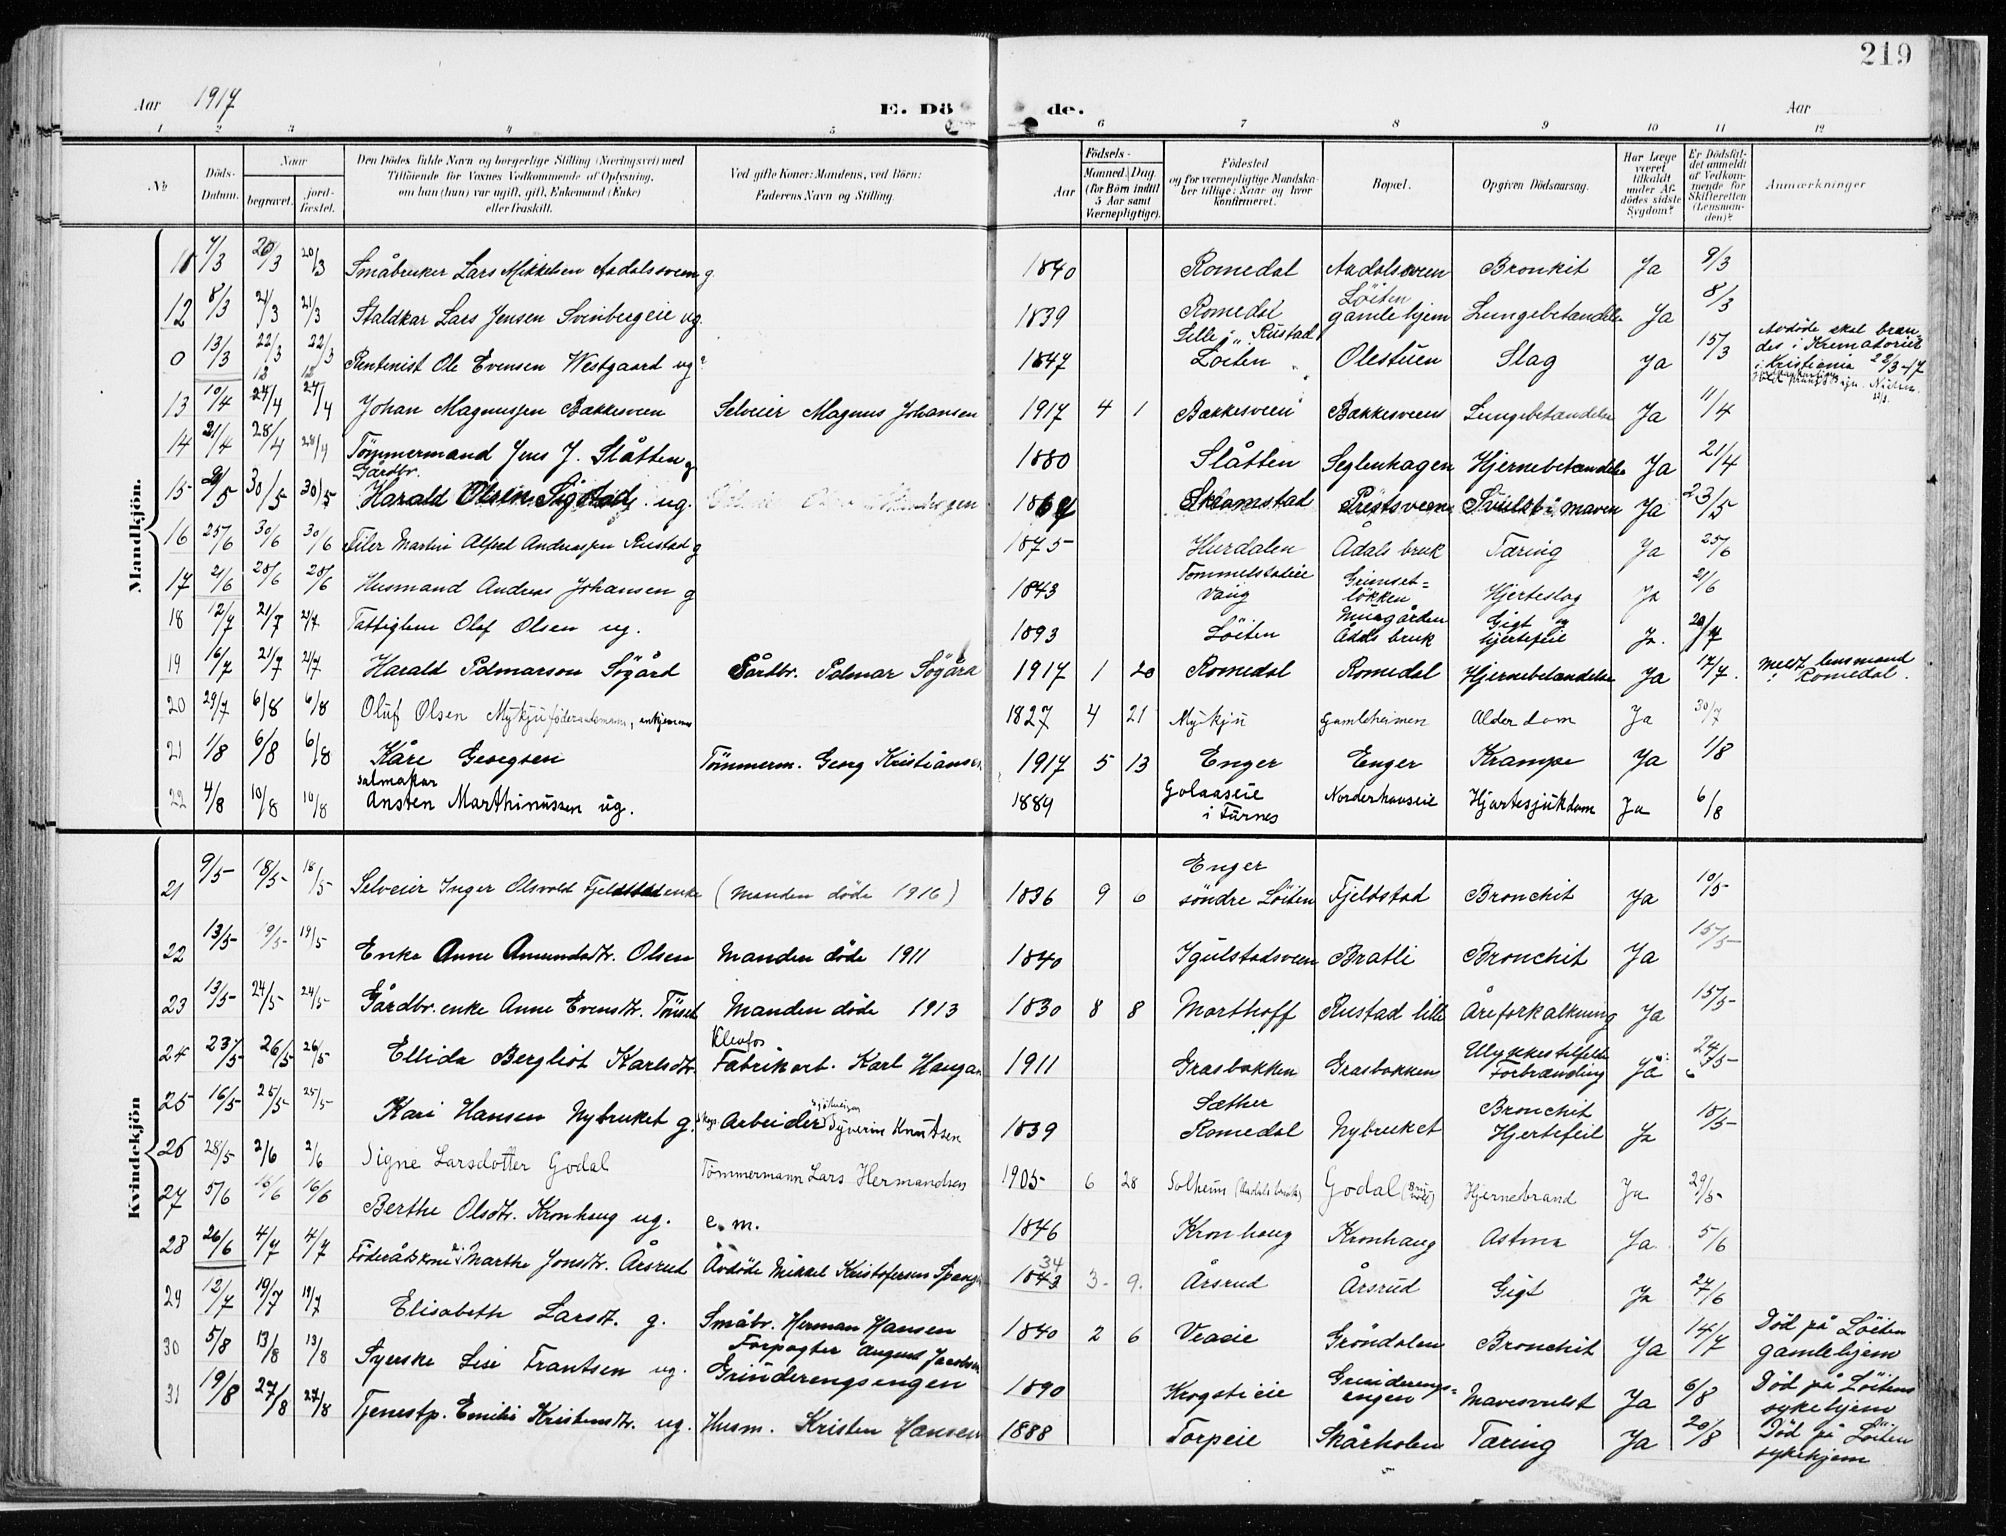 219
Aar 1917 E. Dö de. Aar
1 2 3 4 5 6 7 8 9 10 11 12
No
Döds-Datum.
Naar
begravet.
jord-fæstet.
Den Dödes fulde Navn og borgerlige Stilling (Næringsvei) med
Tilföiende for Voxnes Vedkommende af Oplysning,
om han (hun) var ugift, gift, Enkemand (Enke)
eller fraskilt.
Ved gifte Koner: Mandens, ved Börn:
Faderens Navn og Stilling.
Födsels-
Aar
Maaned. Dag.
(for Börn indtil
5 Aar samt
Værnepligtige).
Födested
og for værnepligtige Mandska-
ber tillige: Naar og hvor
konfirmeret.
Bopæl.
Opgiven Dödsaarsag.
Har Læge
været
tilkaldt
under Af-
dödes sidste
Sygdom?
Er Dödsfal-
det anmeldt
af Vedkom-
mende for
Skifteretten
(Lensman-
den)?
Anmærkninger
Mandkjön.
11 7/3 20/3 20/3 Småbruker Lars Mikkelsen Aadalsveen g. 1840 Romedal Aadalsveen Bronkit Ja 9/3
12 8/3 21/3 21/3 Staldkar Lars Jensen Svinbergeie ug. 1839 Romedal Löiten gamlehjem Lungebetændelse Ja 8/3
0 13/3 22/3 22/3 Rentenist Ole Evensen Westgaard ug? 1847 Lille Rustad i Löiten Olestuen Slag Ja 15/3 Avdöde skal bræn-
des i Krematoriet
i Kristiania 22/3-17
13 10/4 24/4 24/4 Johan Magnussen Bakkesveen Selveier Magnus Johansen 1917 4 1 Bakkesveen Bakkesveen Lungebetændelse Ja 11/4
14 21/4 28/4 28/4 Tömmermand Jens J. Slåtten g 1880 Slåtten Seglenhagen Hjernebetændelse Ja 21/4
15 30/5 30/5 Gårdbr. Harald Olsen Sigstad ug. Skramstad Prestsveen Svulst i maven Ja 23/5
16 25/6 30/6 30/6 Filer Martin Alfred Andreassen Rustad g 1875 Hurdalen Ådals bruk Tæring Ja 25/6
17 21/6 28/6 28/6 Husmand Andreas Johansen g 1843 Tommelstadeie Vang Grimset=lökken Hjerteslag Ja 21/6
18 12/7 21/7 21/7 Fattiglem Olaf Olsen ug. 1893 Löiten Murgården Ådals bruk Gigt og hjertefeil Ja. 20/7
19 16/7 21/7 21/7 Harald Palmarson Sögård Gårdbr. Palmar Sögård 1917 1 20 Romedal Romedal Hjernebetændelse Ja 17/7. Meldt lensmand
i Romedal.
20 29/7 6/8 6/8 Oluf Olsen Mykju föderaadsmann, enkjemann 1827 4 21 Mykju Gamleheimen Alderdom Ja 30/7
21 1/8 6/8 6/8 Kåre Georgsen Tömmerm. Georg Kristiansen 1917 5 13 Enger Enger Krampe Ja 1/8
22 4/8 10/8 10/8 Salmakar Ansten Marthinussen ug. 1889 Golaaseie i Furnes Norderhauseie Hjartesjukdom Ja 6/8
Kvindekjön
21 9/5 18/5 18/5 Selveier Inger Olsvold Fjeldstad enke (Manden döde 1916) 1836 9 6 Enger söndre Löiten Fjeldstad Bronchit Ja 10/5
22 13/5 19/5 19/5 Enke Anne Amundsdtr. Olsen Manden döde 1911 1840 Igulstadsveen Bratli Bronchit Ja 15/5
23 13/5 24/5 24/5 Gårdbr. enke Anne Evensdtr. Tönset Manden döde 1913 1830 8 8 Morthoff Rustad lille Åreforkalkning Ja 15/5
24 23/5 26/5 26/5 Ellida Bergliot Karlsdtr. Klevfos Fabrikarb. Karl Haugan 1911 Grasbakken Grasbakken Ulykkestilfelde Forbrænding Ja 24/5
25 16/5 25/5 25/5 Kari Hansen Nybruket g. Skogs Arbeider Syverin Knutsen 1839 Sæther Romedal Nybruket Bronchit Hjertefeil Ja 18/5
26 28/5 2/6 2/6 Signe Larsdotter Godal Tömmermann Lars Hermandsen 1905 6 28 Solheim (Aadals bruk) Godal Hjernebrand Ja 29/5
27 5/6 16/6 16/6 Berthe Olsdtr. Kronhaug ug. e.m. 1846 Kronhaug Kronhaug Astma Ja. 5/6
28 26/6 4/7 4/7 Föderådskone Marthe Jonsdtr. Årsrud Avdöde Mikkel Kristofersen Spang 1843 34 3 9. Årsrud Årsrud Gigt Ja 27/6
29 12/7 19/7 19/7 Elisabeth Larsdt. g. Småbr. Herman Hansen 1840 2 6 Veaeie Gröndalen Bronchit Ja 14/7 Död på Löiten
gamlehjem
30 5/8 13/8 13/8 Syerske Lise Frantsen ug. Forpagter August Jacobsen Grinderengsengen 1890 Krogstieie Grinderengs=engen Mavesvulst Ja 6/8 Död på Löitens
sykehjem
31 19/8 27/8 27/8 Tjenestp. Emilie Kristensdtr. ug. Husm. Kristen Hansen 1888 Torpeie Skårholen Tæring Ja 20/8 Död på Löiten
sykehjem